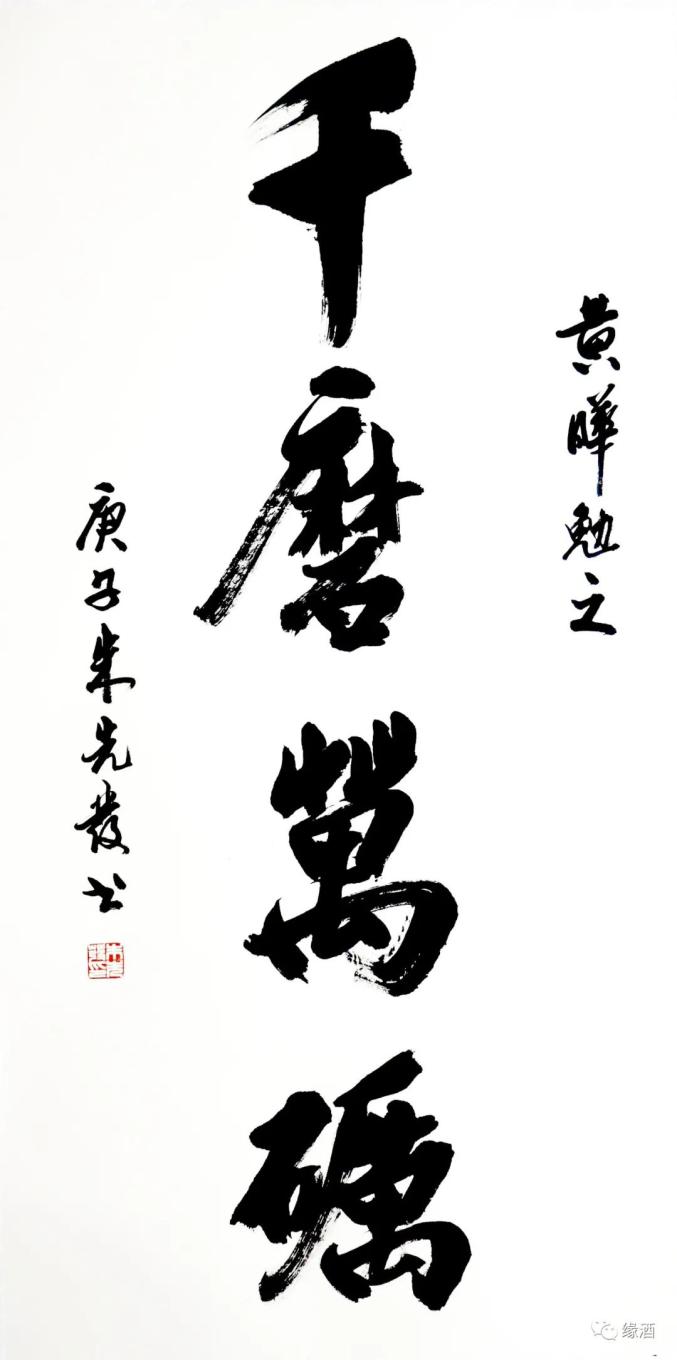 黄曄勉之
千磨萬礪
庚子朱先發书
缘酒